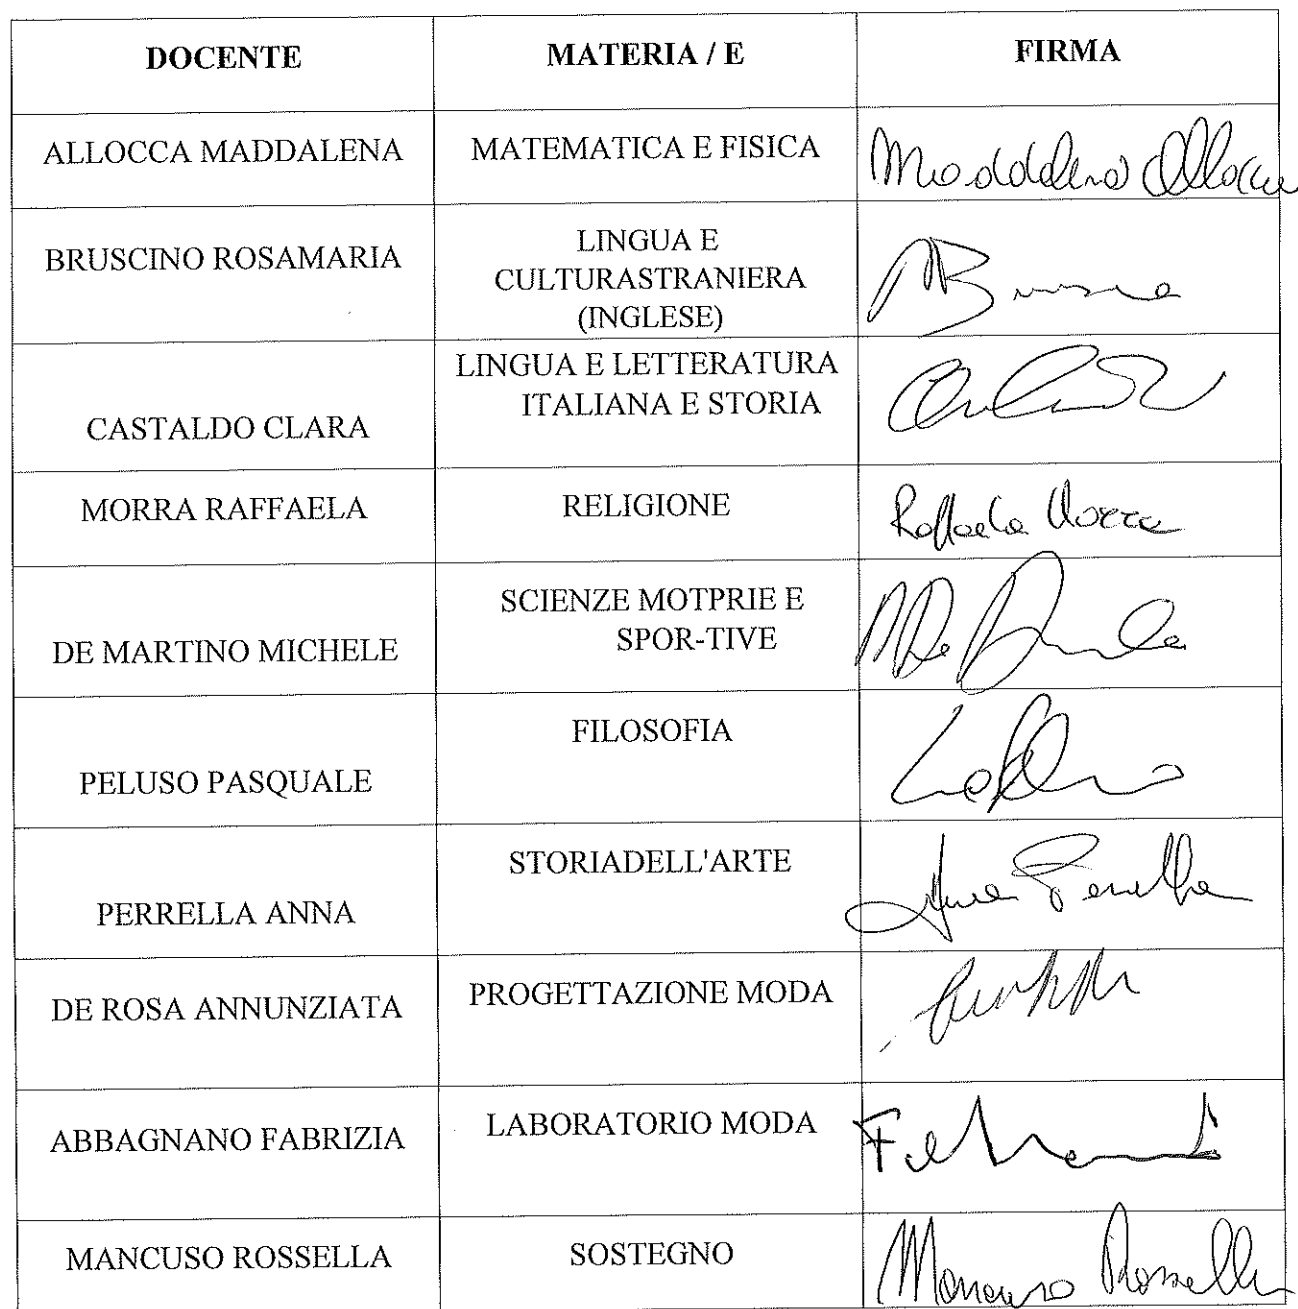 DOCENTE MATERIA / E FIRMA
ALLOCCA MADDALENA MATEMATICA E FISICA Maddalena Allocca
BRUSCINO ROSAMARIA LINGUA E
CULTURASTRANIERA
(INGLESE)
LINGUA E LETTERATURA
ITALIANA E STORIA
CASTALDO CLARA
MORRA RAFFAELA RELIGIONE Raffaela Morra
SCIENZE MOTPRIE E
SPOR-TIVE
DE MARTINO MICHELE
FILOSOFIA
PELUSO PASQUALE
STORIADELL'ARTE
PERRELLA ANNA Anna Perrella
DE ROSA ANNUNZIATA PROGETTAZIONE MODA
ABBAGNANO FABRIZIA LABORATORIO MODA
MANCUSO ROSSELLA SOSTEGNO Mancuso Rossella